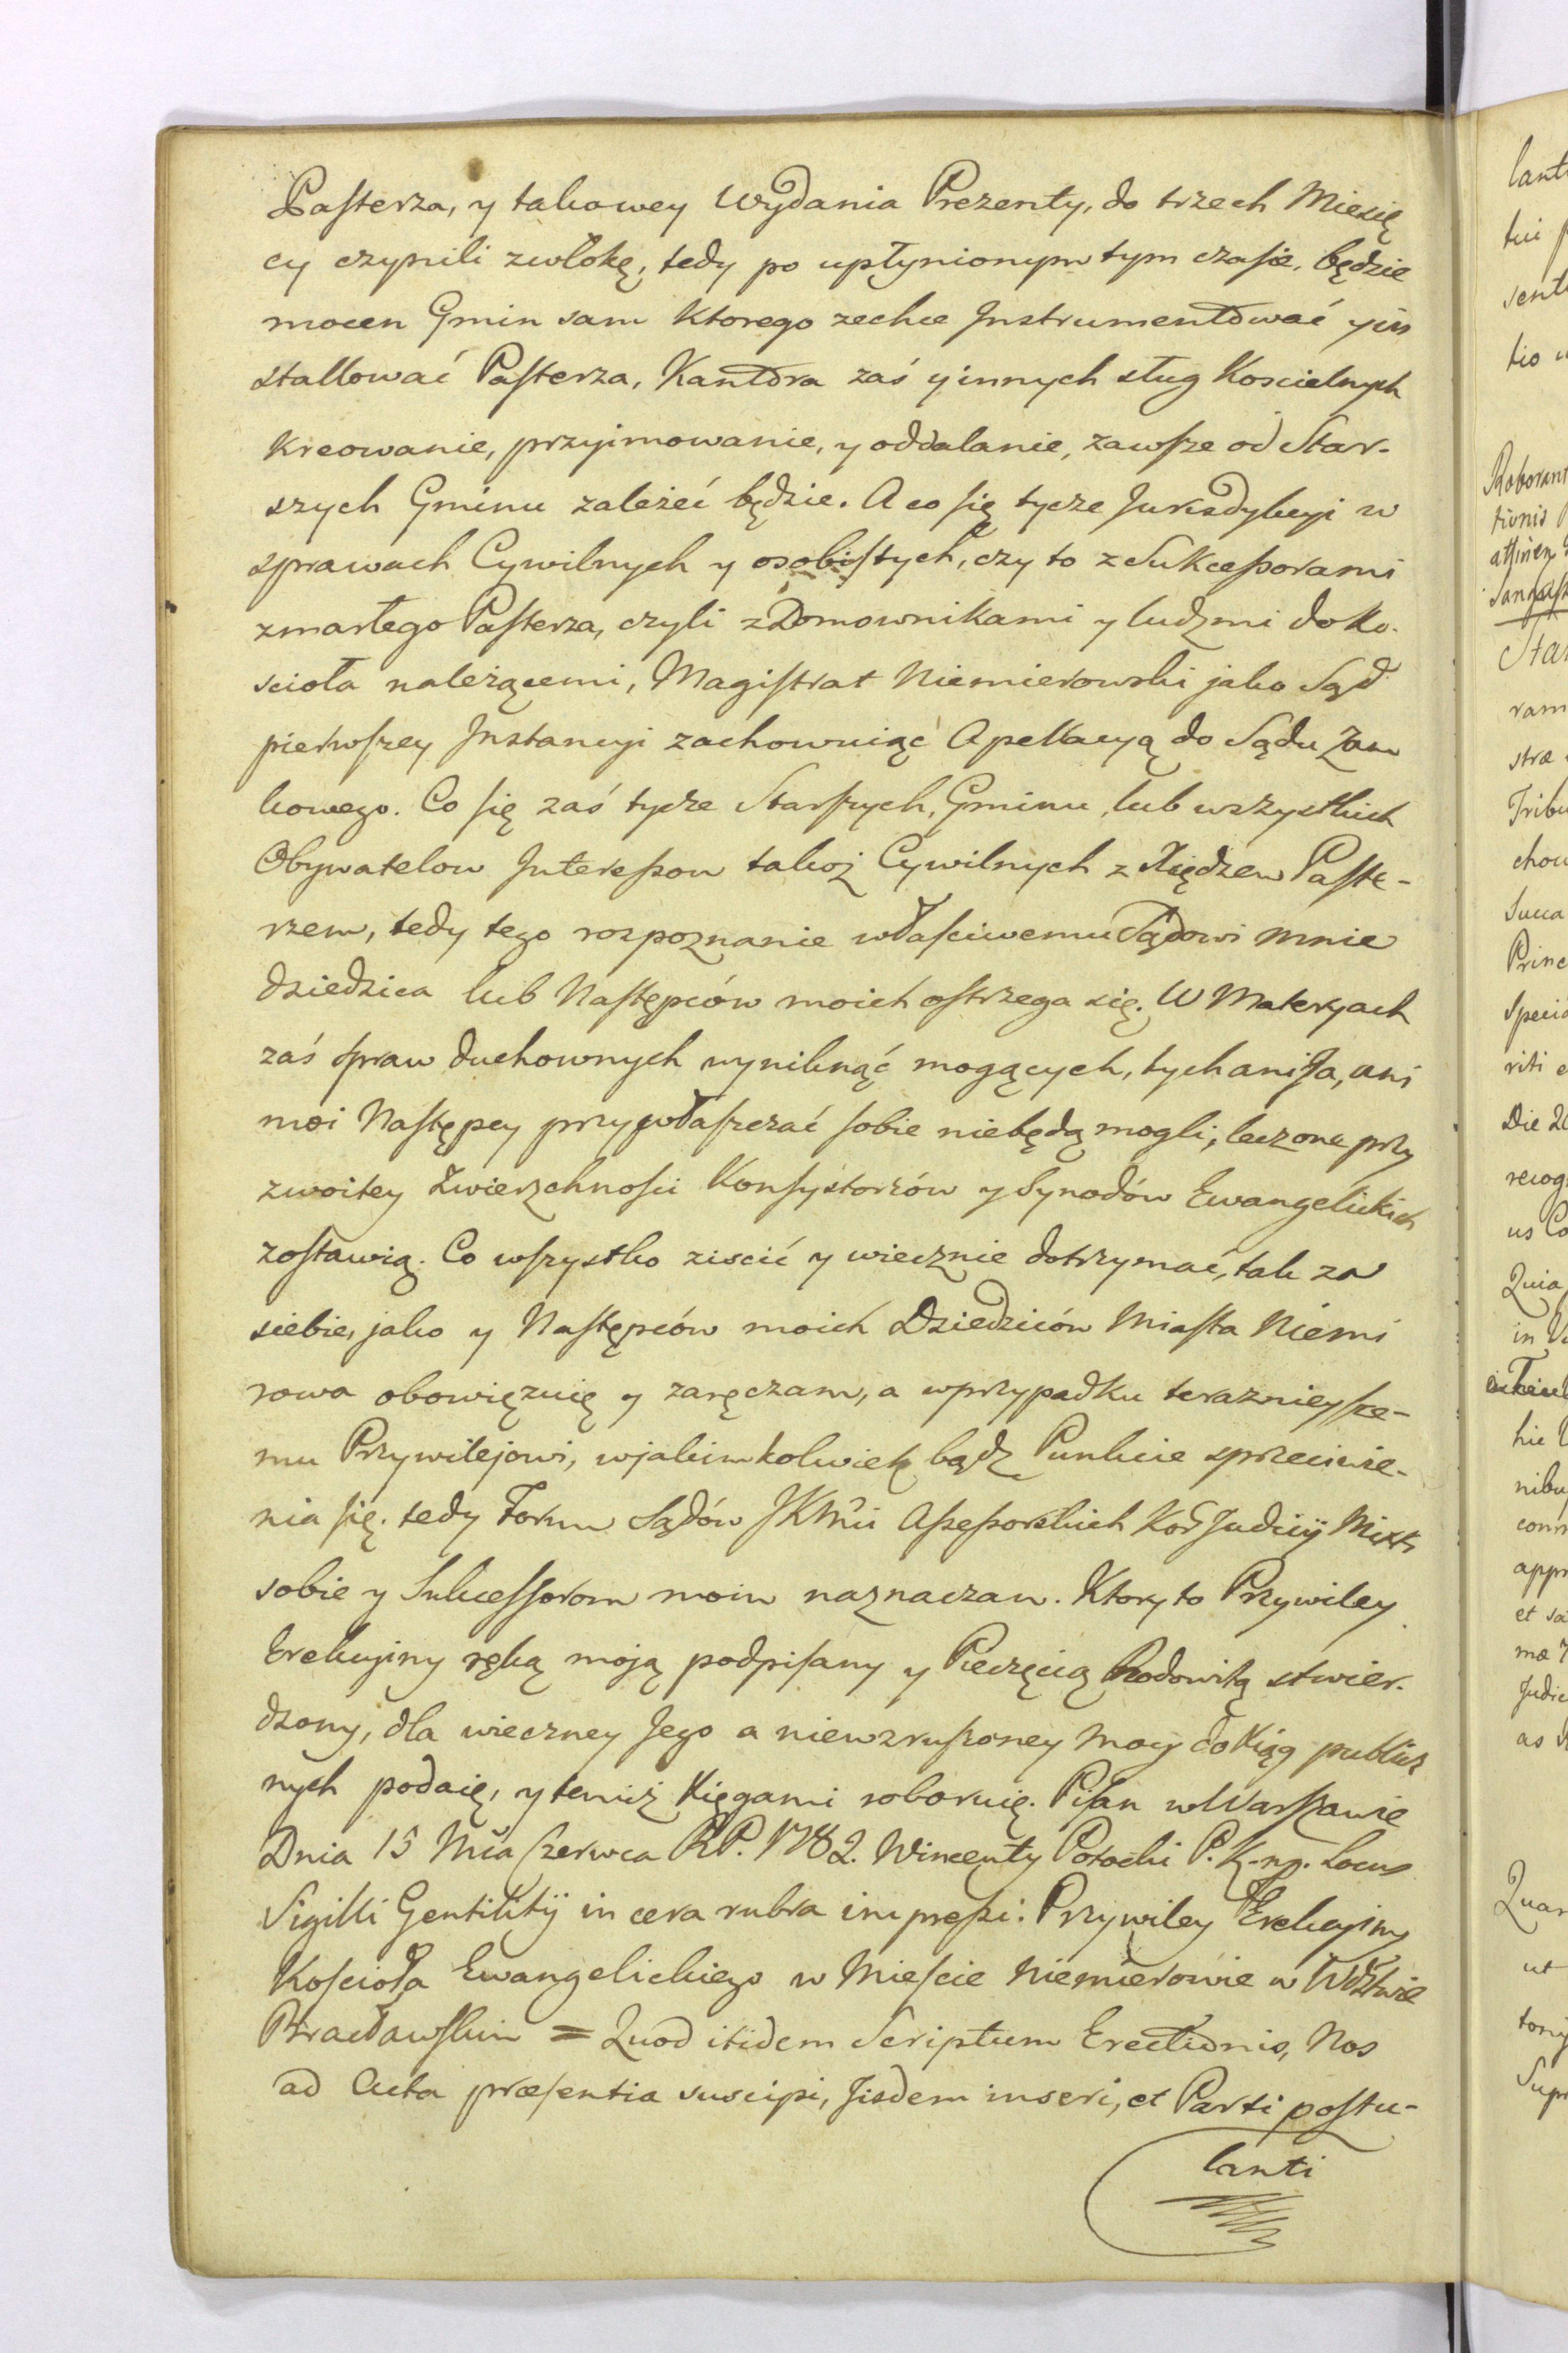 Pasterza, y takowey Wydania Prezenty, do trzech Miesię
cy czynili zwłokę, tedy po upłynionym tym czasie, będzie
mocen Gmin sam ktorego zechce Instrumentować y in
stallować Pasterza, Kantora zaś y innych sług Koscielnych
kreowanie, przyimowanie, y oddalanie, zawsze od Star-
szych Gminu zależeć będzie. A co się tycze Jurisdykcyi w
sprawach Cywilnych y osobistych, czy to z Sukcessorami
zmarłego Pasterza, czyli z Domownikami y ludzmi do Ko-
scioła należącemi, Magistrat Niemierowski jako Sąd
pierwszey Instancyi zachowuiąc Apellacyą do Sądu Zam
kowego. Co się zaś tycze Starszych, Gminu, lub wszystkich
Obywatelow Interessow takoż Cywilnych z Xiędzem Paste-
rzem, tedy tego rozpoznanie właściwemu Sądowi mnie
dziedzica lub Następców moich ostrzega się. W Materyach
zaś spraw duchownych wyniknąć mogących, tych ani Ja, ani
moi Następcy przywłaszczać sobie niebędą mogli, lecz one przy
zwoitey Zwierzchności Konsystorzów y Synodów Ewangelickich
zostawią. Co wszystko ziscić y wiecznie dotrzymać, tak za
siebie, jako y Następców moich Dziedziców Miasta Niemi
rowa obowięzuię y zaręczam, a w przypadku teraznieysze-
mu Przywilejowi, w jakimkolwiek bądz Punkcie sprzeciwie-
nia się. tedy Forum Sądów JKMci Assessorskich Kor Judicij Mixti
sobie y Sukcessorom moim naznaczam. Ktory to Przywiley
Erekcyiny ręką moją podpisany y Pieczęcią Rodowitą stwier-
dzony, dla wieczney Jego a niewzruszoney mocy do Xiąg publicz
nych podaię, y temiż Xięgami roboruię. Pisan w Warszawie
Dnia 15 Mca Czerwca RP. 1782. Wincenty Potocki P. K. mp. Locus
Sigilli Gentilitij in cera rubra impressi. Przywiley Erekcyiny
Kościoła Ewangelickiego w Mieście Niemierowie w Wdztwie
Bracławskim = Quod itidem Scriptum Erectionis, Nos
ad Acta præsentia suscipi, Iisdem inseri, et Parti postu-
lanti